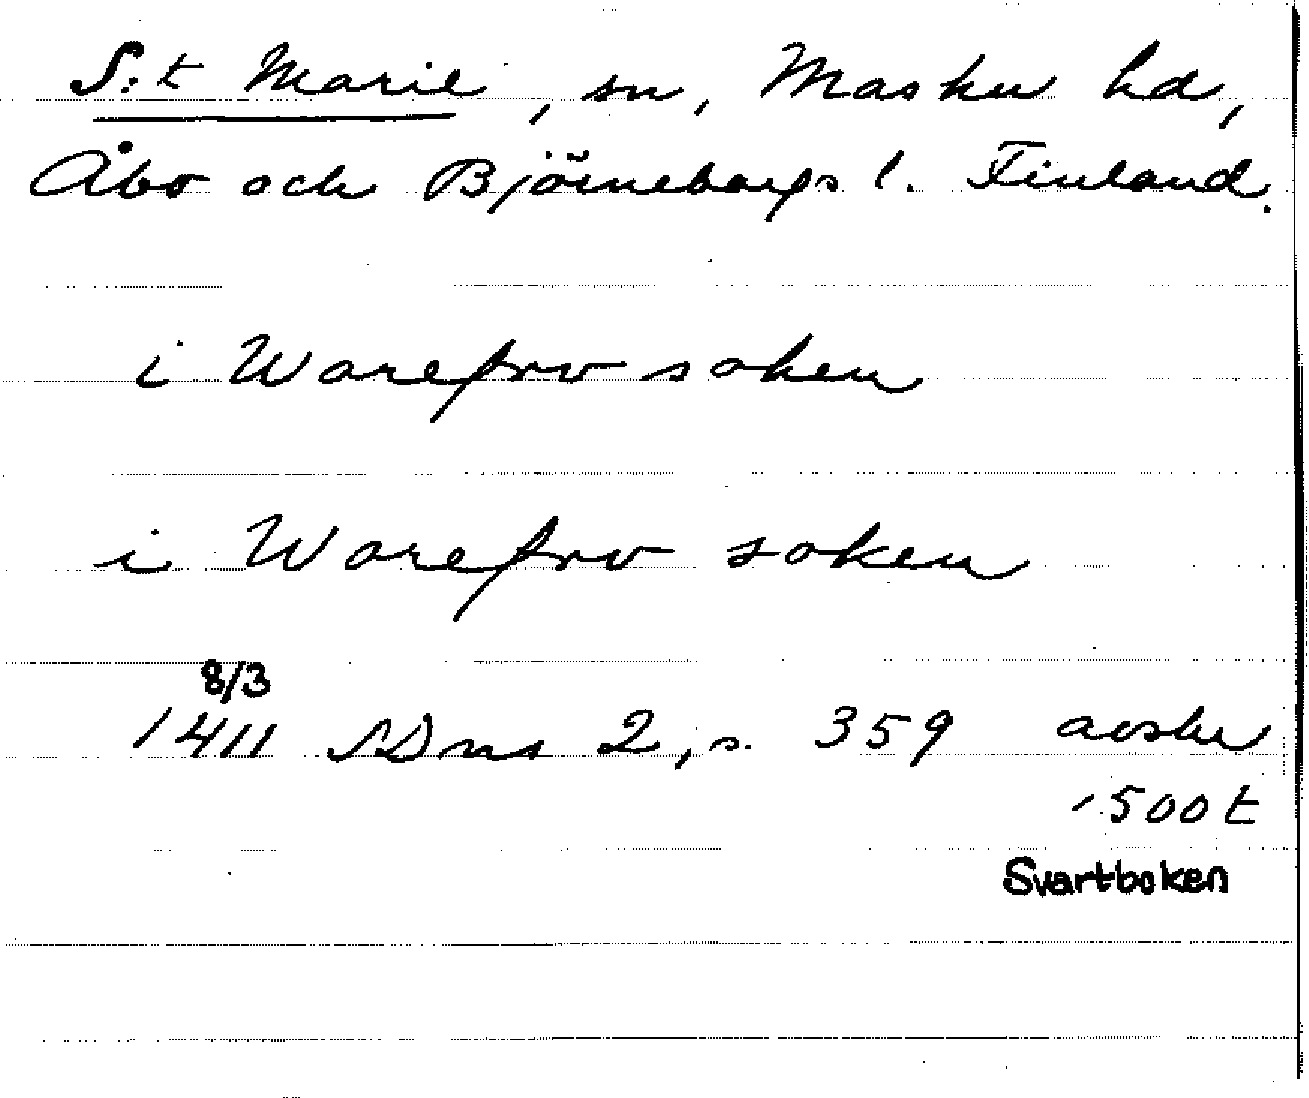 S:t Marie, sn, Masku hd,
Åbo och Björneborgs l. Finland.
i Warefrv soken
i Warefrv soken
8/3
1411 SDns 2, s. 359 avskr
1500 t
Svartboken